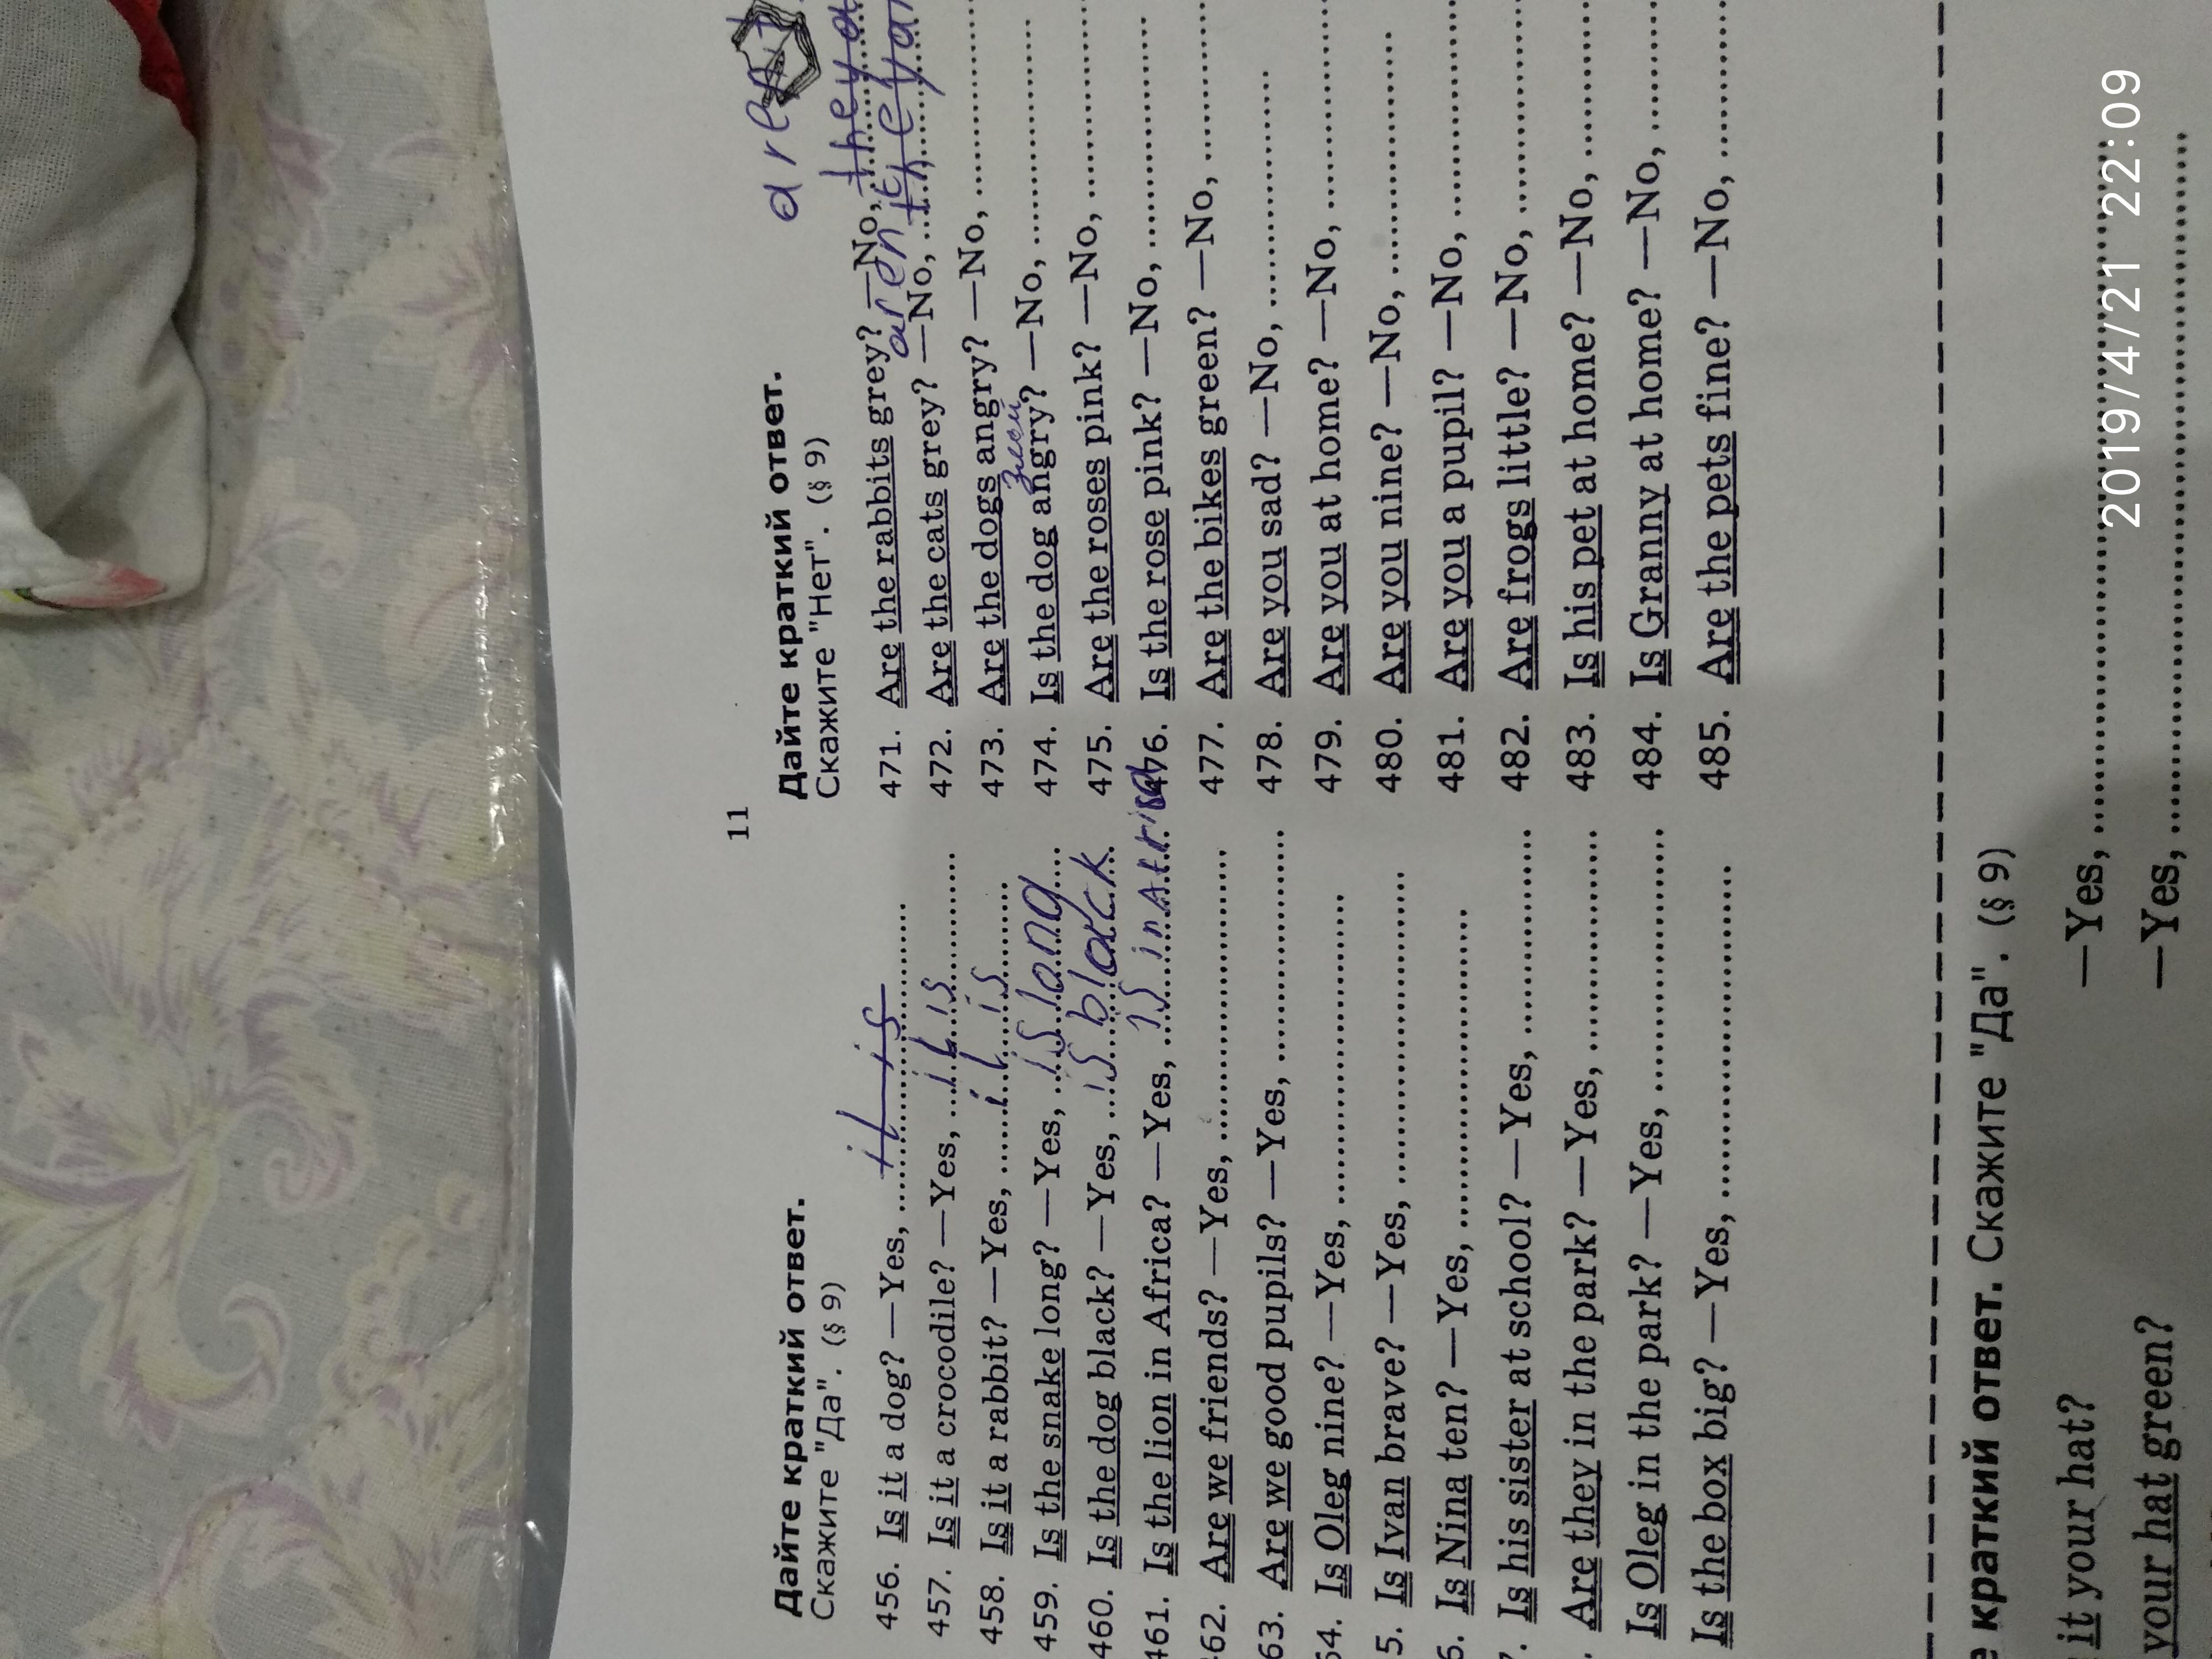 11
Дайте краткий ответ.
Скажите "Да". (§ 9)
456. Is it a dog? —Yes, it is
457. Is it a crocodile? —Yes, it is
458. Is it a rabbit? —Yes, it is
459. Is the snake long? —Yes, is long
460. Is the dog black? —Yes, is black
461. Is the lion in Africa? —Yes, is in
462. Are we friends? —Yes,
63. Are we good pupils? —Yes,
64. Is Oleg nine? —Yes,
5. Is Ivan brave? —Yes,
6. Is Nina ten? —Yes,
7. Is his sister at school? —Yes,
. Are they in the park? —Yes,
Is Oleg in the park? —Yes,
Is the box big? —Yes,
Дайте краткий ответ.
Скажите "Нет". (§ 9)
471. Are the rabbits grey? —No,
472. Are the cats grey? —No,
473. Are the dogs angry? —No,
злой
474. Is the dog angry? —No,
475. Are the roses pink? —No,
476. Is the rose pink? —No,
477. Are the bikes green? —No,
478. Are you sad? —No,
479. Are you at home? —No,
480. Are you nine? —No,
481. Are you a pupil? —No,
482. Are frogs little? —No,
483. Is his pet at home? —No,
484. Is Granny at home? —No,
485. Are the pets fine? —No,
е краткий ответ. Скажите "Да". (§ 9)
it your hat? —Yes,
your hat green? —Yes,
2019/4/21 22:09